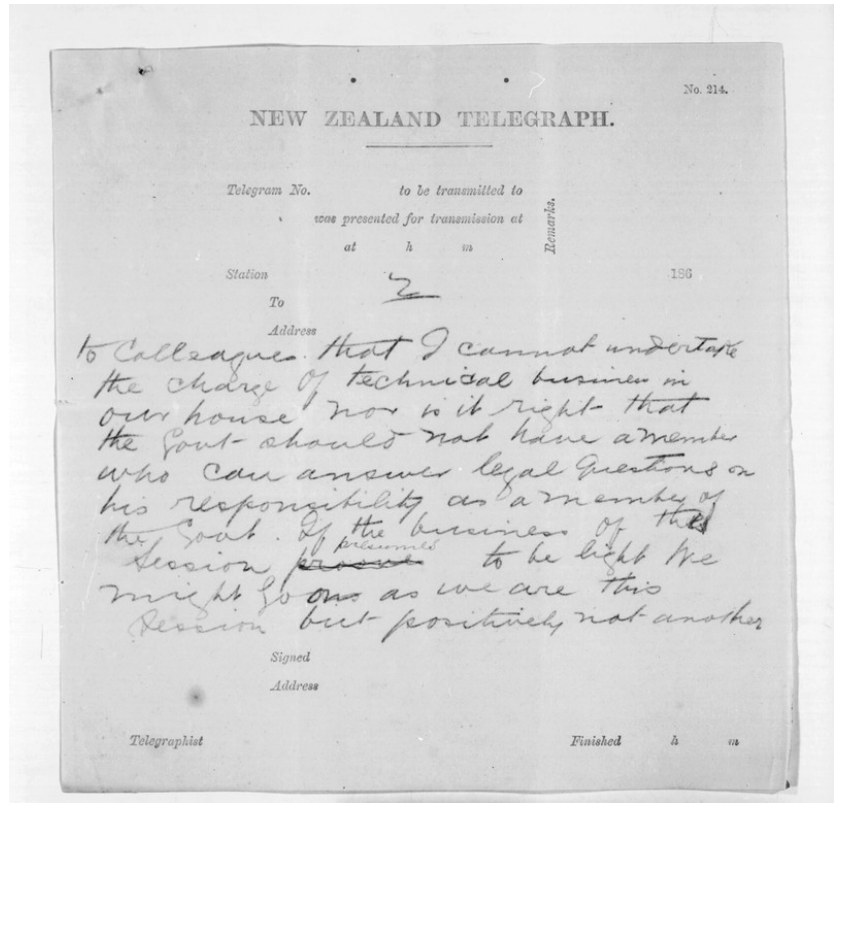 No. 214.
NEW ZEALAND TELEGRAPH.
Telegram No. to be transmitted to
was presented for transmission at
at h m
Remarks.
Station 186
2
To
Address
to Colleagues that I cannot undertake
the charge of technical business in
our house nor is it right that
the Govt should not have a member
who can answer legal questions on
his responsibility as a member of
the Govt. If the business of the
presumed
Session to be light We
might go on as we are this
Session but positively not another
Signed
Address
Telegraphist Finished h m